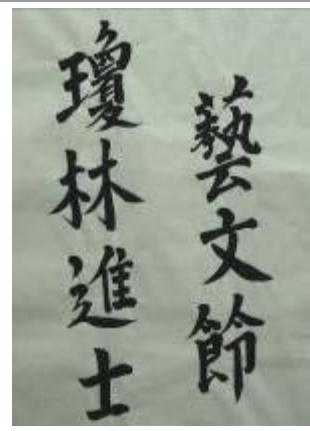 藝文節
瓊林進士